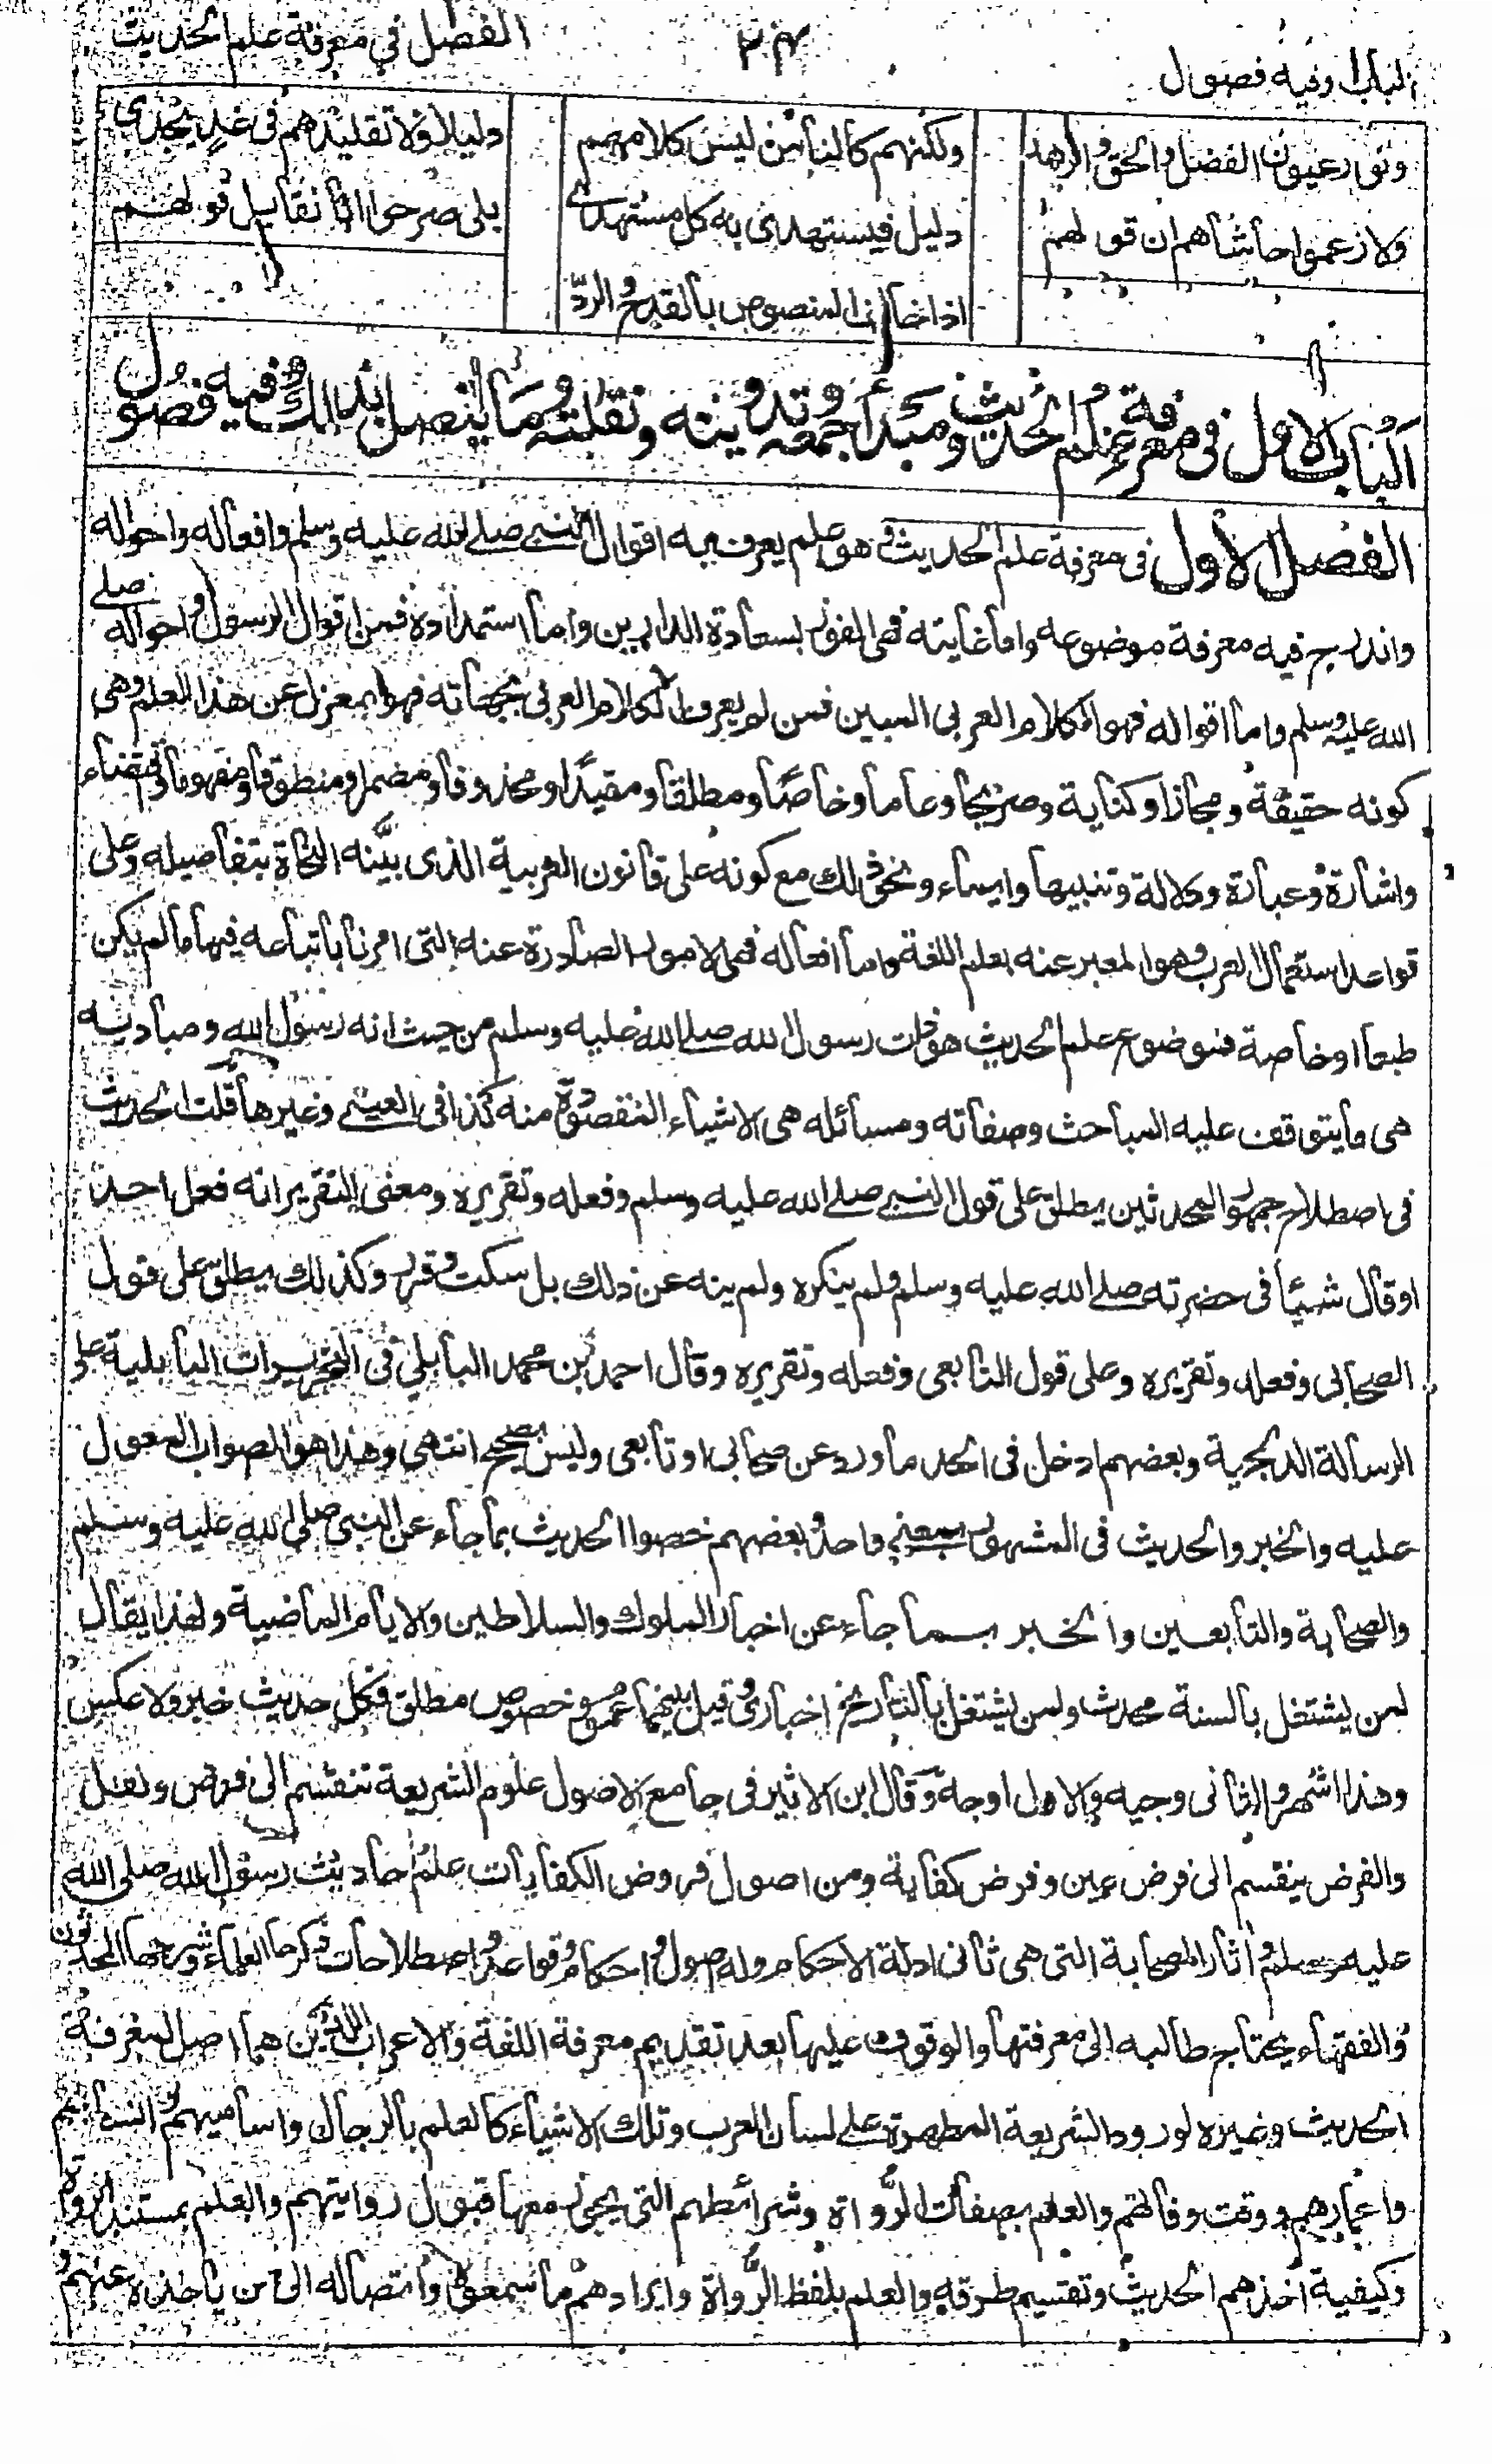 الباب ١ وفيه فصول
٢٣
الفصل في معرفة علم الحديث
ونور عيون الفضل والحق والزهد
ولكنهم كالناس ليس كلامهم
دليلا ولا تقليدهم في غد يجدي
ولا زعموا حاشاهم ان قولهم
دليل فيستهدي به كل مستهدي
بلى صرحوا انا نقابل قولهم
اذا خالف المنصوص بالقدح والرد
الباب الاول في معرفة علم الحديث ومبدأ جمعه وتدوينه ونقلته وما يتصل بذلك وفيه فصول
الفصل الاول في معرفة علم الحديث وهو علم يعرف به اقوال النبي صلى الله عليه وسلم وافعاله واحواله
واندرج فيه معرفة موضوعه واما غايته فهي الفوز بسعادة الدارين واما استمداده فمن اقوال الرسول واحواله صلى
الله عليه وسلم واما اقواله فهو الكلام العربي المبين فمن لم يعرف الكلام العربي بجهاته فهو بمعزل عن هذا العلم وهي
كونه حقيقة ومجازا وكناية وصريحا وعاما وخاصا ومطلقا ومقيدا ومحذوفا ومضمرا ومنطوقا ومفهوما واقتضاء
واشارة وعبارة ودلالة وتنبيها وايماء ونحو ذلك مع كونه على قانون العربية الذي بينه النحاة بتفاصيله وعلى
قواعد استعمال العرب وهو المعبر عنه بعلم اللغة واما افعاله فهي الامور الصادرة عنه التي امرنا باتباعه فيها ما لم يكن
طبعا او خاصة فموضوع علم الحديث هو ذات رسول الله صلى الله عليه وسلم من حيث انه رسول الله ومباديه
هي ما يتوقف عليه المباحث وصفاته ومسائله هي الاشياء المقصودة منه كذا في العيني وغيرها قلت الحديث
في اصطلاح جمهور المحدثين يطلق على قول النبي صلى الله عليه وسلم وفعله وتقريره ومعنى التقرير انه فعل احد
او قال شيئا في حضرته صلى الله عليه وسلم ولم ينكره ولم ينه عن ذلك بل سكت وقرر وكذلك يطلق على قول
الصحابي وفعله وتقريره وعلى قول التابعي وفعله وتقريره وقال احمد بن محمد البابلي في التحريرات البابلية على
الرسالة الدلجية وبعضهم ادخل في الحد ما ورد عن صحابي او تابعي وليس بصحيح انتهى وهذا هو الصواب المعول
عليه والخبر والحديث في المشهور بمعنى واحد وبعضهم خصوا الحديث بما جاء عن النبي صلى الله عليه وسلم
والصحابة والتابعين والخبر بما جاء عن اخبار الملوك والسلاطين والايام الماضية ولهذا يقال
لمن يشتغل بالسنة محدث ولمن يشتغل بالتاريخ اخباري وقيل بينهما عموم وخصوص مطلق فكل حديث خبر ولا عكس
وهذا اشهر والثاني وجيه والاول اوجه وقال ابن الاثير في جامع الاصول علوم الشريعة تنقسم الى فرض ونفل
والفرض ينقسم الى فرض عين وفرض كفاية ومن اصول فروض الكفايات علم احاديث رسول الله صلى الله
عليه وسلم واثار الصحابة التي هي ثاني ادلة الاحكام وله اصول واحكام وقواعد واصطلاحات ذكرها العلماء وشرحها المحدثون
والفقهاء يحتاج طالبه الى معرفتها والوقوف عليها بعد تقديم معرفة اللغة والاعراب اللذين هما اصل لمعرفة
الحديث وغيره لورود الشريعة المطهرة على لسان العرب وتلك الاشياء كالعلم بالرجال واساميهم وانسابهم
واعمارهم ووقت وفاتهم والعلم بصفات الرواة وشرائطهم التي يجوز معها قبول روايتهم والعلم بمستند الرواة
وكيفية اخذهم الحديث وتقسيم طرقه والعلم بلفظ الرواة وايرادهم ما سمعوه واتصاله الى من ياخذه عنهم